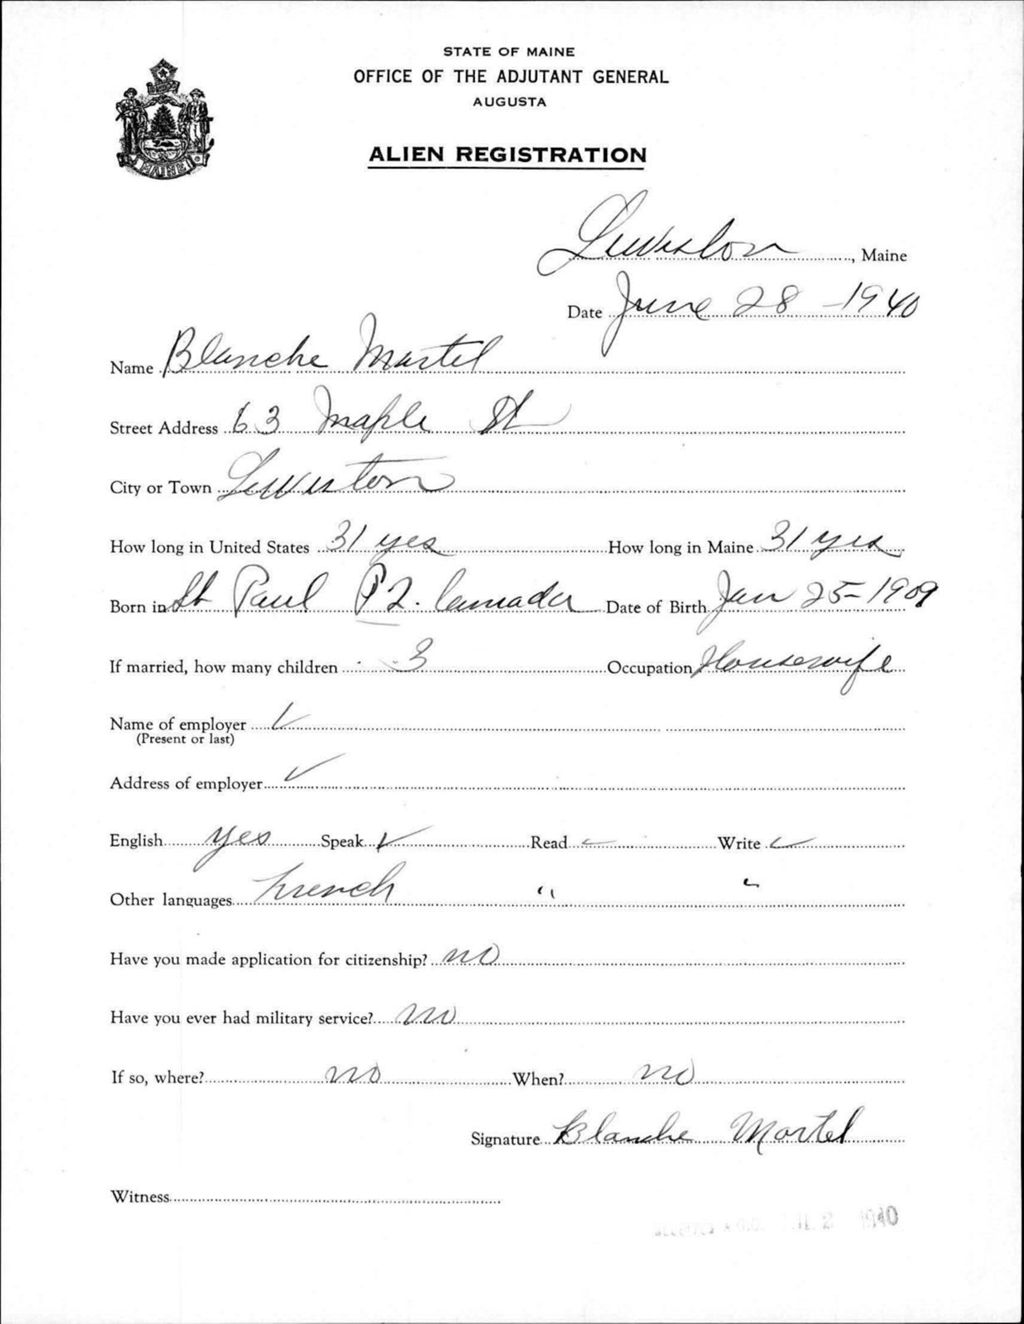 STATE OF MAINE
OFFICE OF THE ADJUTANT GENERAL
AUGUSTA
ALIEN REGISTRATION
MAINE
Lewiston, Maine
Date June 28 - 1940
Name Blanche Martel
Street Address 63 Maple St
City or Town Lewiston
How long in United States 31 yrs How long in Maine 31 yrs
Born in St Paul P2. Canada Date of Birth Jan 25 - 1909
If married, how many children 3 Occupation Housewife
Name of employer ✓
(Present or last)
Address of employer ✓
English yes Speak ✓ Read ✓ Write ✓
Other languages French " "
Have you made application for citizenship? no
Have you ever had military service? no
If so, where? no When? no
Signature Blanche Martel
Witness
2 1940